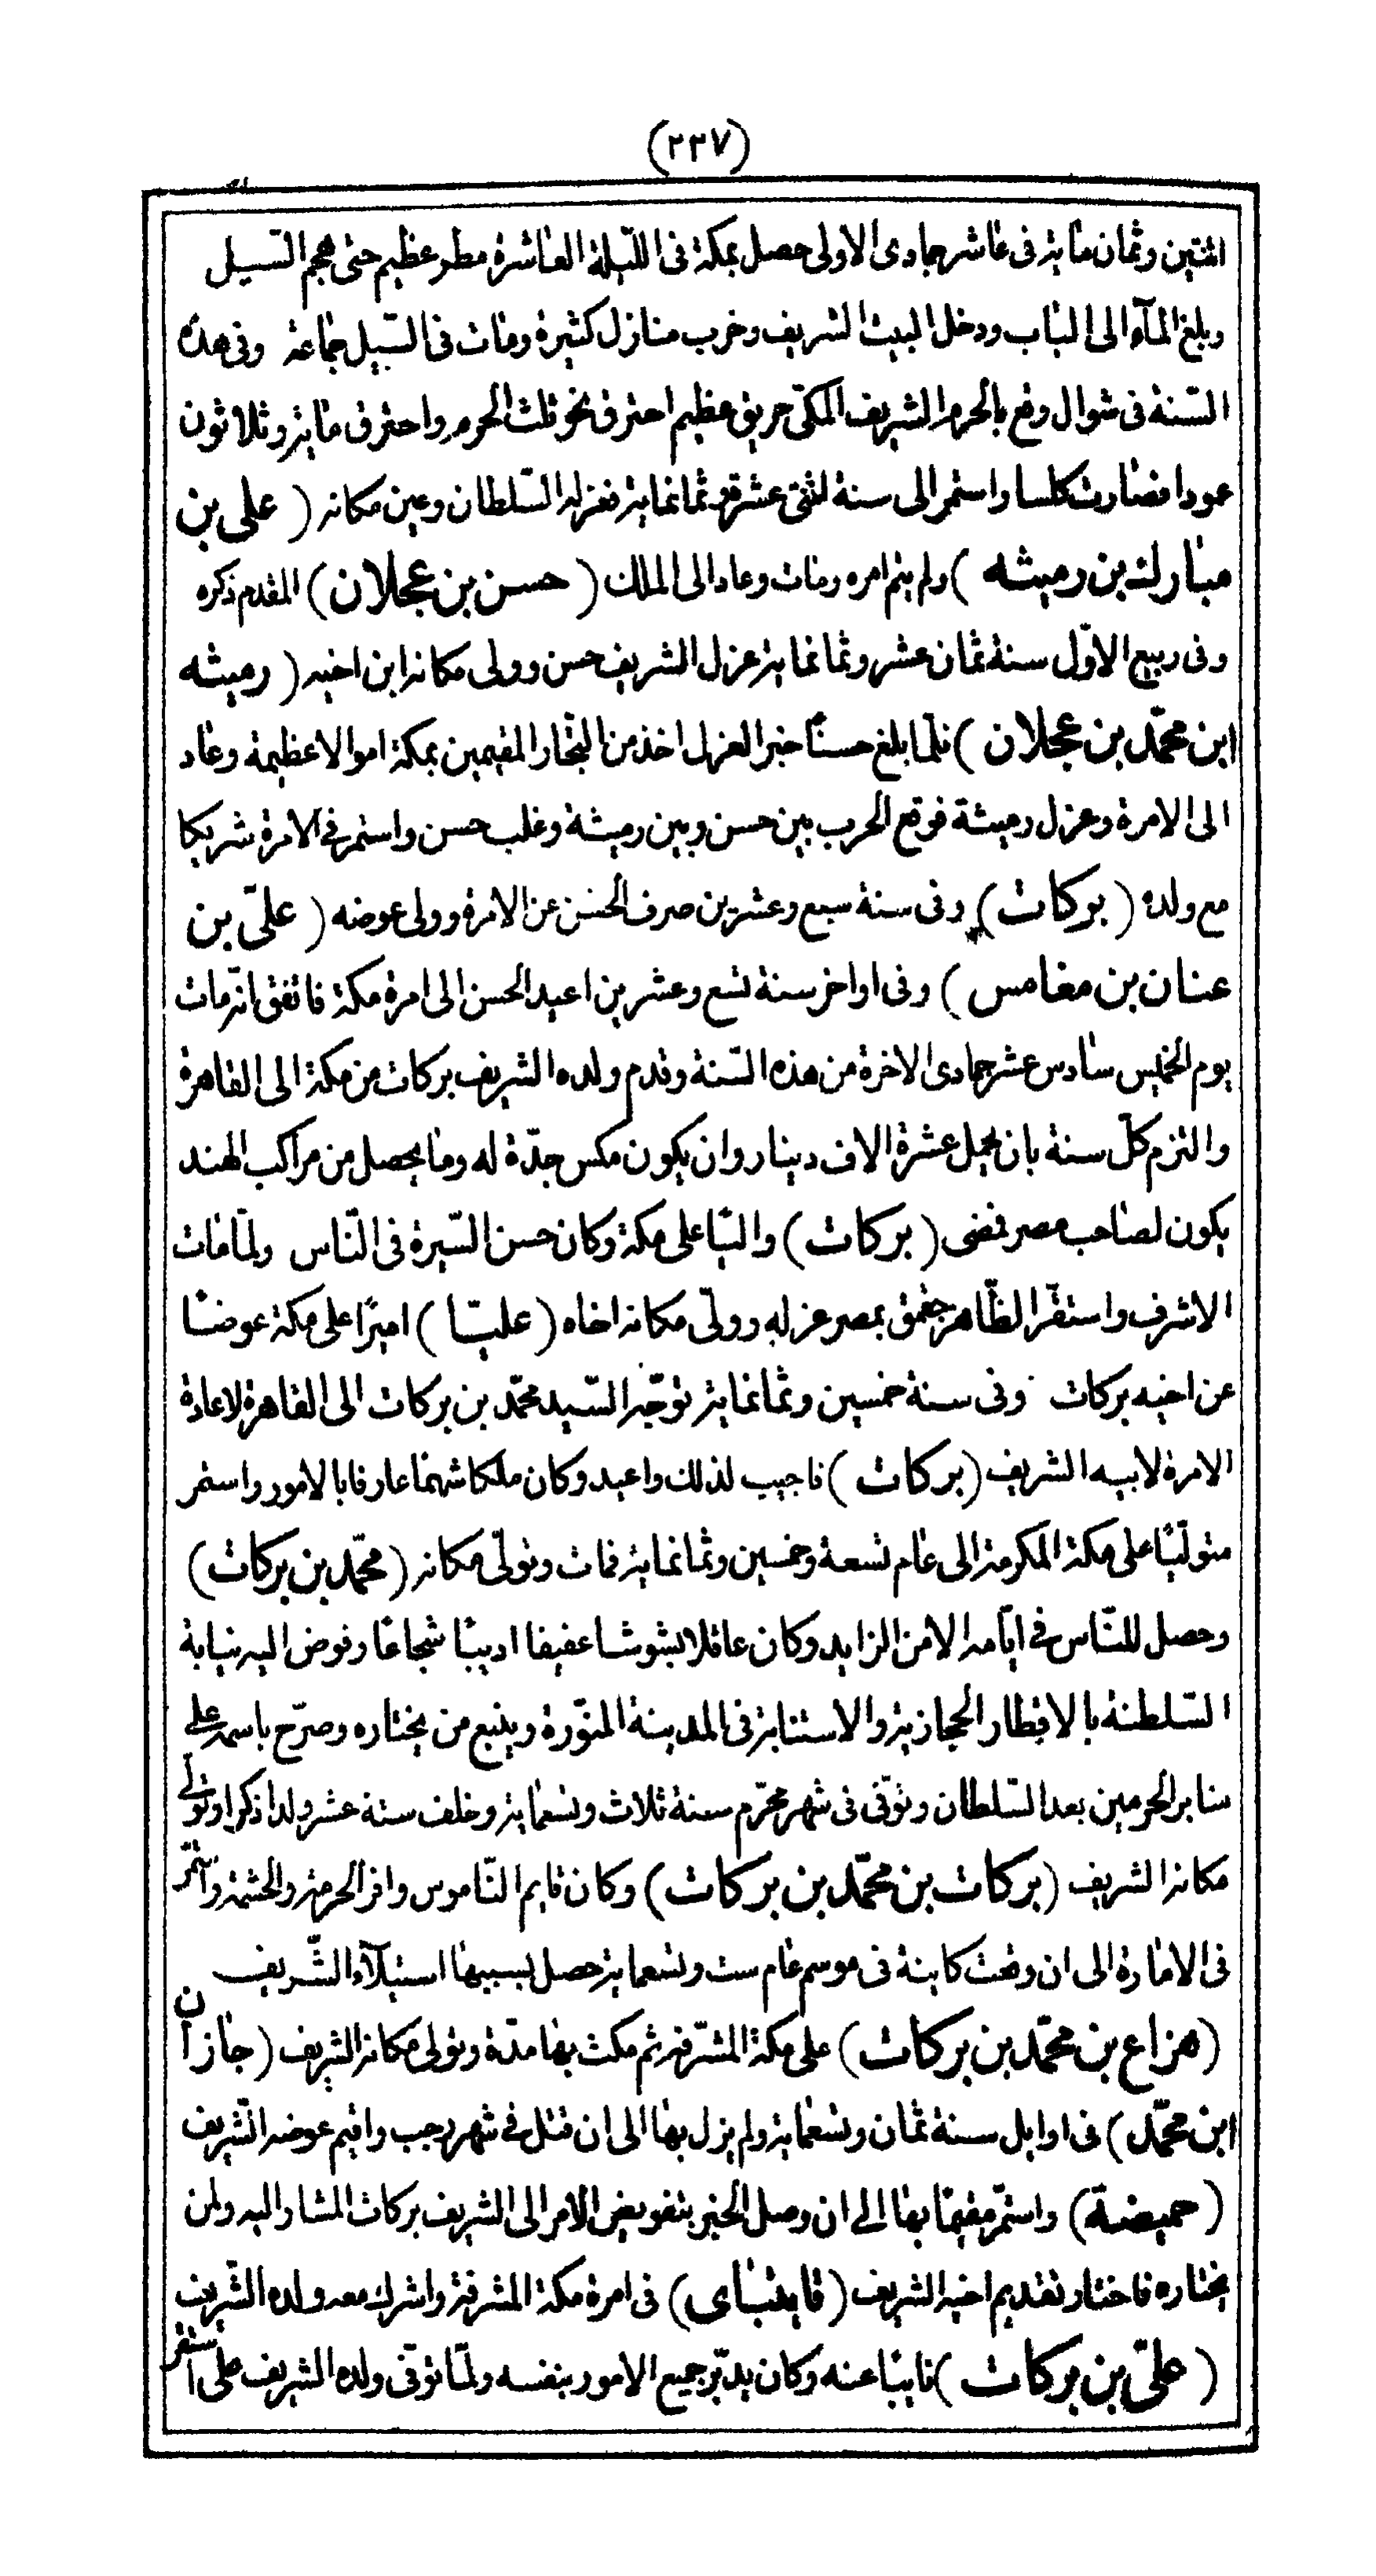 (٢٢٧)
اثنتين وثمان مائة في عاشر جمادى الاولى حصل بمكة فى الليلة العاشرة مطر عظيم حتى هجم السيل
وبلغ المآء الى الباب ودخل البيت الشريف وخرب منازل كثيرة ومات فى السيل جماعة وفى هذه
السنة فى شوال وقع بالحرم الشريف المكى حريق عظيم احترق نحو ثلث الحرم واحترق مائة وثلاثون
عمودا فصارت كلسا واستمر الى سنة اثنتى عشرة وثمانمائة فعزله السلطان وعين مكانه ( على بن
مبارك بن رميثه ) ولم يتم امره ومات وعاد الى الملك ( حسن بن عجلان ) المقدم ذكره
وفى ربيع الاول سنة ثمان عشر وثمانمائة عزل الشريف حسن وولى مكانه ابن اخيه ( رميثه
ابن محمد بن عجلان ) فلما بلغ حسنا خبر العزل اخذ من التجار المقيمين بمكة اموالا عظيمة وعاد
الى الامرة وعزل رميثة فوقع الحرب بين حسن وبين رميثة وغلب حسن واستمر في الامرة شريكا
مع ولده ( بركات ) وفى سنة سبع وعشرين صرف الحسن عن الامرة وولى عوضه ( على بن
عنان بن مغامس ) وفى اواخر سنة تسع وعشرين اعيد الحسن الى امرة مكة فاتفق انه مات
يوم الخميس سادس عشر جمادى الاخرة من هذه السنة وقدم ولده الشريف بركات من مكة الى القاهرة
والتزم كل سنة بان يحمل عشرة الاف دينار وان يكون مكس جدة له وما يحصل من مراكب الهند
يكون لصاحب مصر فمضى ( بركات ) واليا على مكة وكان حسن السيرة فى الناس ولما مات
الاشرف واستقر الظاهر جقمق بمصر عزله وولى مكانه اخاه ( عليا ) اميرا على مكة عوضا
عن اخيه بركات وفى سنة خمسين وثمانمائة توجه السيد محمد بن بركات الى القاهرة لاعادة
الامرة لابيه الشريف ( بركات ) فاجيب لذلك واعيد وكان ملكا شهما عارفا بالامور واستمر
متوليا على مكة المكرمة الى عام تسعة وخمسين وثمانمائة فمات وتولى مكانه ( محمد بن بركات )
وحصل للناس في ايامه الامن الزايد وكان عاقلا بشوشا عفيفا اديبا شجاعا وفوض اليه نيابة
السلطنة بالاقطار الحجازية والاستنابة فى المدينة المنورة وينبع من يختاره وصرح باسمه على
منابر الحرمين بعد السلطان وتوفى فى شهر محرم سنة ثلاث وتسعمائة وخلف ستة عشر ولدا ذكرا وتولى
مكانه الشريف ( بركات بن محمد بن بركات ) وكان قايم الناموس وافر الحرمة والحشمة واستمر
فى الامارة الى ان وقعت كاينة فى موسم عام ست وتسعمائة حصل بسببها استيلآء الشريف
( هزاع بن محمد بن بركات ) على مكة المشرفة ثم مكث بها مدة وتولى مكانه الشريف ( جازان
ابن محمد ) فى اوايل سنة ثمان وتسعمائة ولم يزل بها الى ان قتل في شهر رجب واقيم عوضه الشريف
( حميضة ) واستمر مقيما بها الى ان وصل الخبر بتفويض الامر الى الشريف بركات المشار اليه ولمن
يختاره فاختار تقديم اخيه الشريف ( قايتباى ) فى امرة مكة المشرفة واشرك معه ولده الشريف
( على بن بركات ) نايبا عنه وكان يدبر جميع الامور بنفسه ولما توفى ولده الشريف على استقر